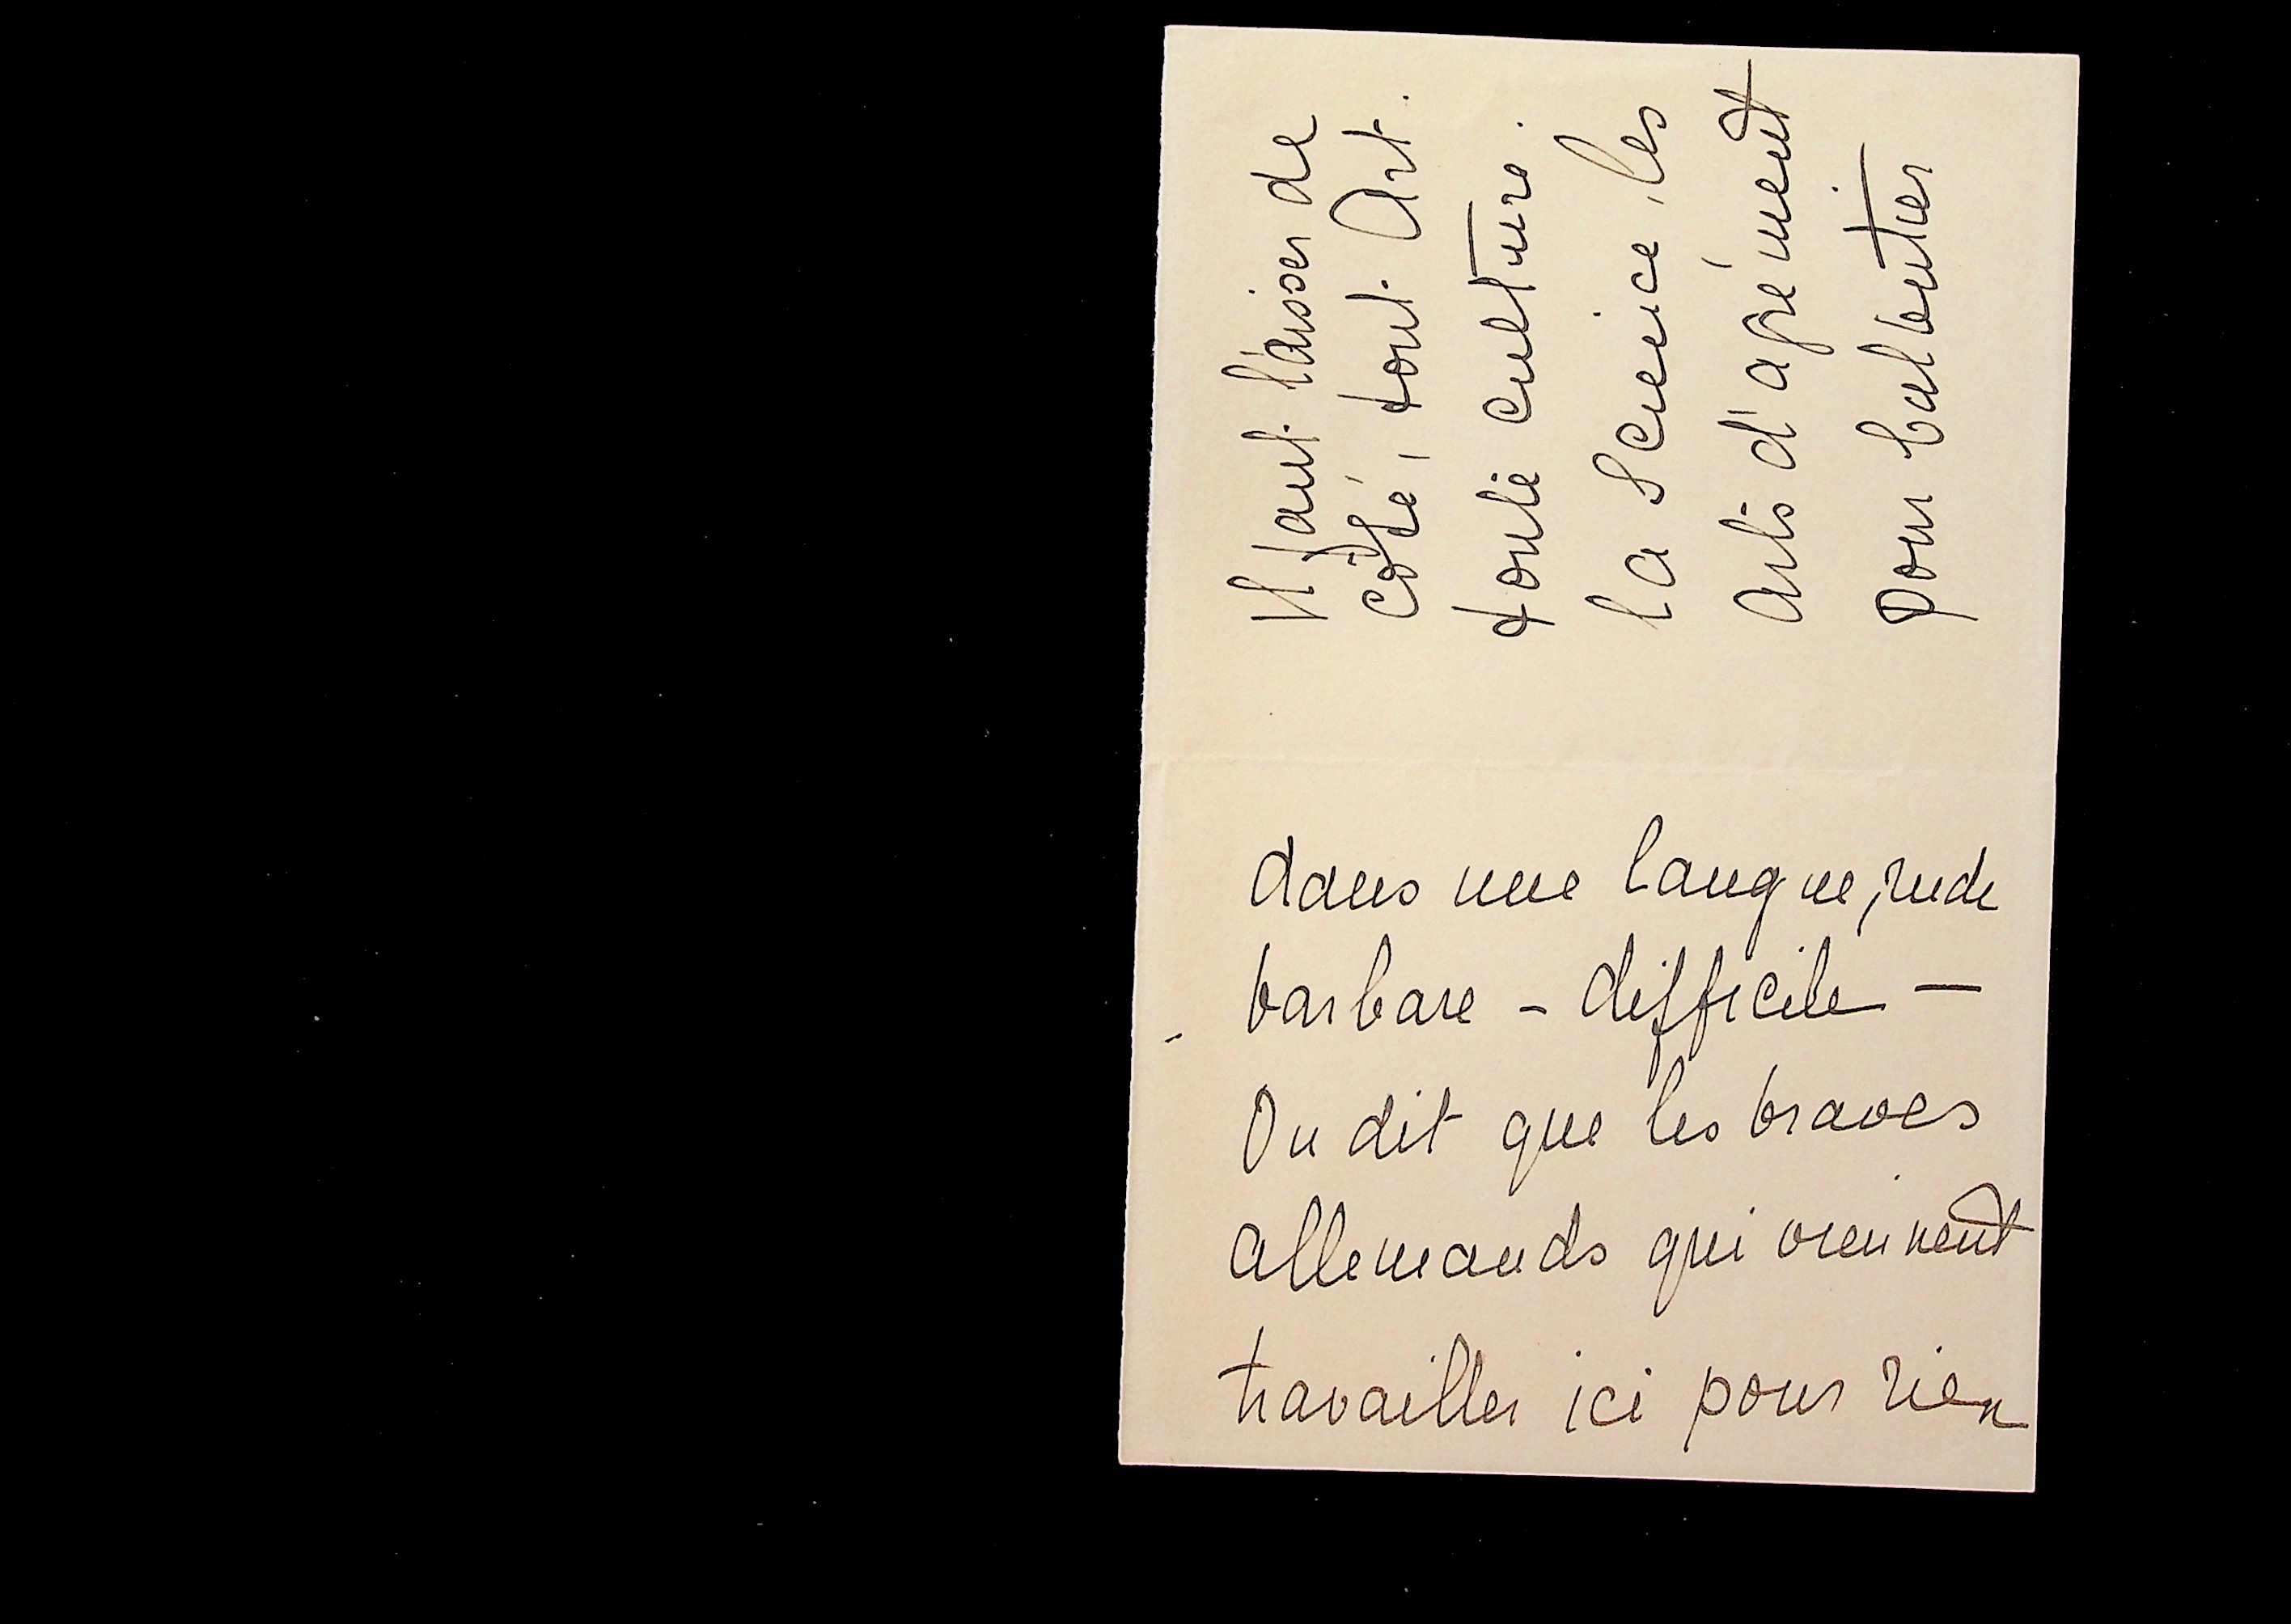 Il faut laisser de
côté, tout Art.
toute culture.
la Science, les
arts d'agrément
pour balbutier
dans une langue, rude
barbare - difficile -
On dit que les braves
allemands qui viennent
travailler ici pour rien